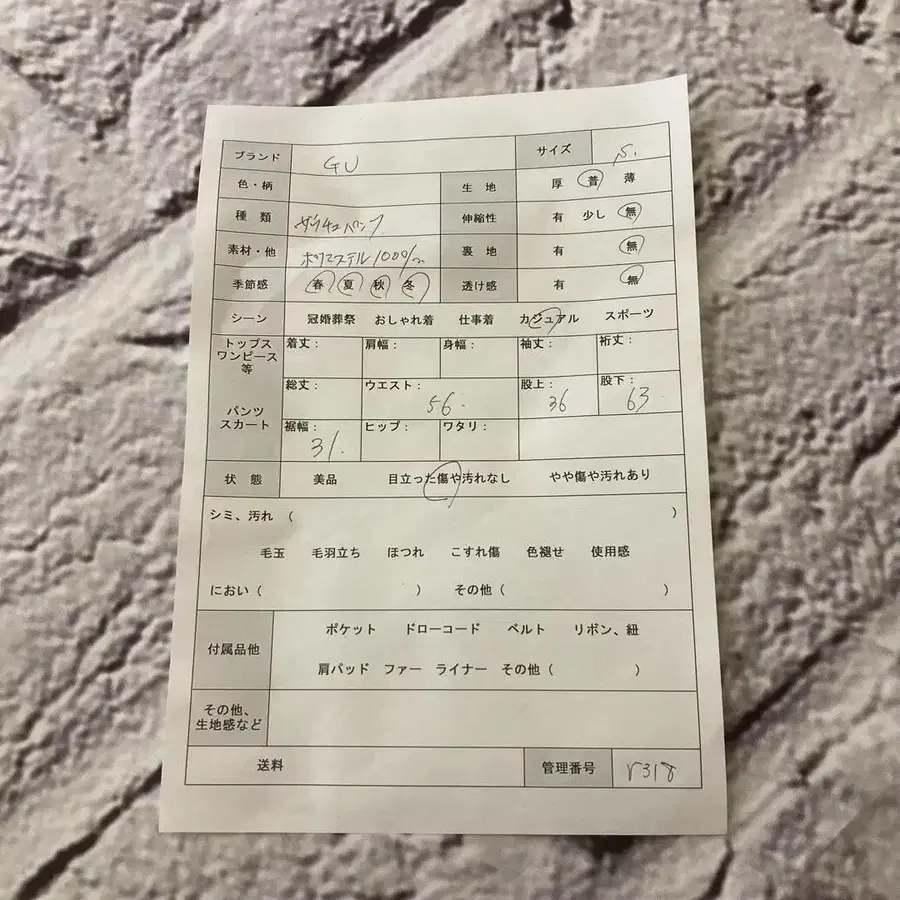 ブランド GU サイズ S.
色・柄 生 地 厚 普 薄
種 類 ガウチョパンツ 伸縮性 有 少し 無
素材・他 ポリエステル100% 裏 地 有 無
季節感 春 夏 秋 冬 透け感 有 無
シーン 冠婚葬祭 おしゃれ着 仕事着 カジュアル スポーツ
トップス
ワンピース
等
着丈： 肩幅： 身幅： 袖丈： 裄丈：
パンツ
スカート
総丈： ウエスト： 56. 股上： 36 股下： 63.
裾幅： 31. ヒップ： ワタリ：
状 態 美品 目立った傷や汚れなし やや傷や汚れあり
シミ、汚れ （ ）
毛玉 毛羽立ち ほつれ こすれ傷 色褪せ 使用感
におい（ ） その他（ ）
付属品他 ポケット ドローコード ベルト リボン、紐
肩パッド ファー ライナー その他（ ）
その他、
生地感など
送料 管理番号 r318